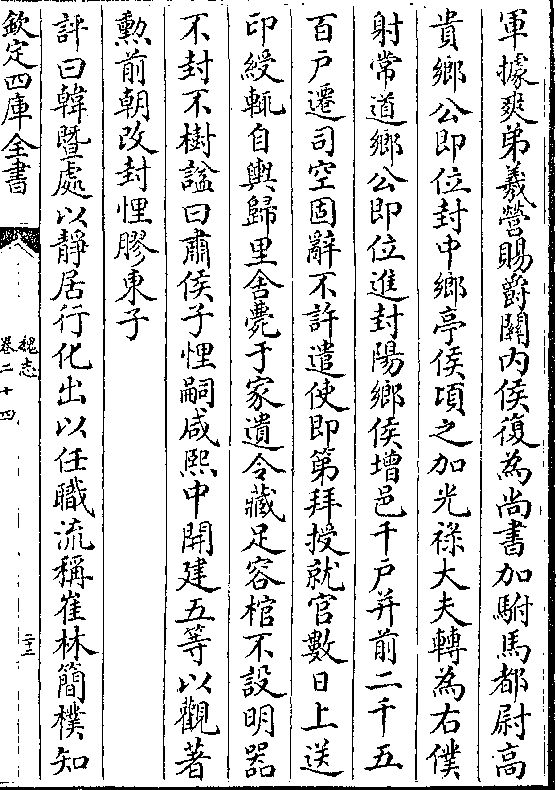 軍據爽弟羲營賜爵關内侯復為尚書加駙馬都尉高
貴鄉公即位封中鄉亭侯頃之加光祿大夫轉為右僕
射常道鄉公即位進封陽鄉侯增邑千戸并前二千五
百戸遷司空固辭不許遣使即第拜授就官數日上送
印綬輒自輿歸里舍薨于家遺令藏足容棺不設明器
不封不樹諡曰肅侯子悝嗣咸熙中開建五等以觀著
勲前朝改封悝膠東子
評曰韓暨處以靜居行化出以任職流稱崔林簡樸知
欽定四庫全書
魏志
卷二十四
二十三